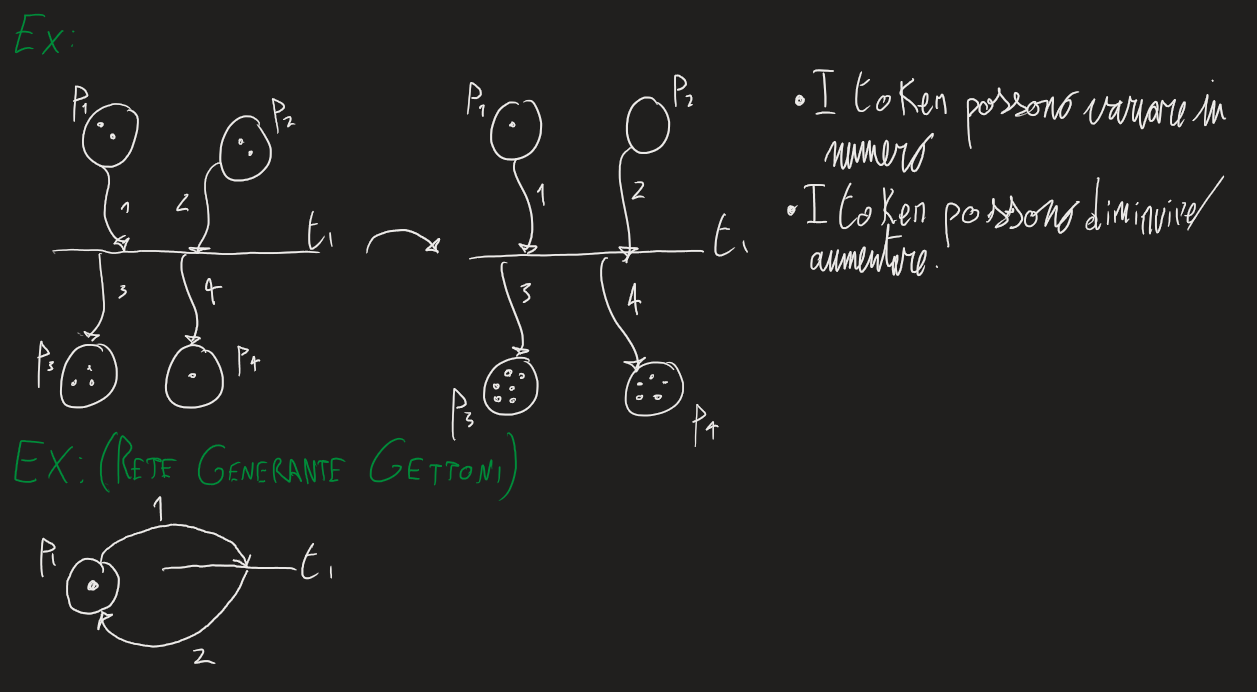 Ex:
P1
P2
1
2
t1
3
4
P3
P4
P1
P2
1
2
t1
3
4
P3
P4
• I token possono variare in
numero
• I token possono diminuire/
aumentare.
Ex: (Rete Generante Gettoni)
1
P1
t1
2